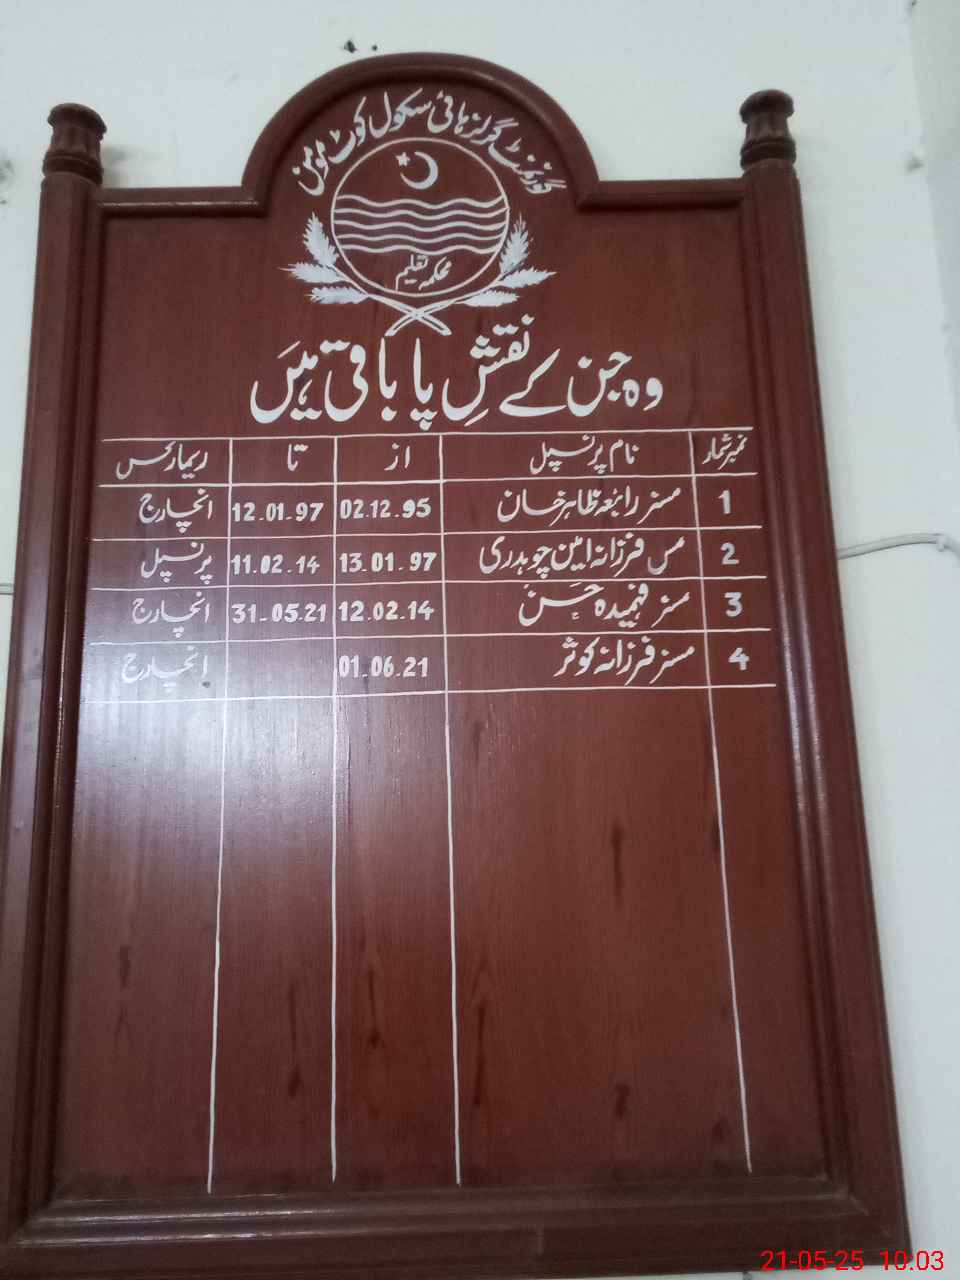 گورنمنٹ گرلز ہائی سکول کوٹ مومن
محکمہ تعلیم
وہ جن کے نقشِ پا باقی ہیں
نمبر شمار نام پرنسپل از تا ریمارکس
1 مسز رابعہ طاہر خان 02.12.95 12.01.97 انچارج
2 مس فرزانہ امین چوہدری 13.01.97 11.02.14 پرنسپل
3 مسز فہمیدہ حسن 12.02.14 31.05.21 انچارج
4 مسز فرزانہ کوثر 01.06.21 انچارج
21-05-25 10:03